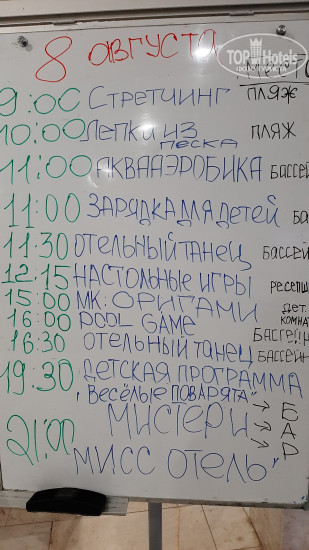 8 августа
TOP Hotels
9:00 Стретчинг пляж
10:00 Лепки из песка пляж
11:00 АКВААЭРОБИКА бассей
11:00 ЗАРЯДКА ДЛЯ ДЕТЕЙ ба
11:30 ОТЕЛЬНЫЙ ТАНЕЦ бассей
12:15 НАСТОЛЬНЫЕ ИГРЫ ресепш
15:00 МК: ОРИГАМИ дет. комна
16:00 POOL GAME бассейн
16:30 ОТЕЛЬНЫЙ ТАНЕЦ бассейн
19:30 ДЕТСКАЯ ПРОГРАММА
"ВЕСЁЛЫЕ ПОВАРЯТА" → БАР
21:00 МИСТЕР И
МИСС ОТЕЛЬ"